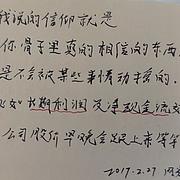 我说的信仰就是
你骨子里真的相信的东西
是不会被某些事情动摇的.
比如"长期利润及净现金流
公司股价早晚会跟上来等等
2017.2.27